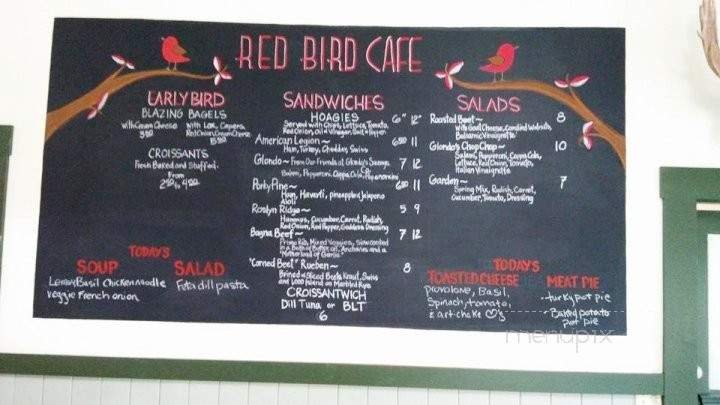 RED BIRD CAFE
EARLY BIRD
BLAZING BAGELS
with Cream Cheese
with Lox, Capers,
Red Onion, Cream Cheese
CROISSANTS
Fresh Baked and Stuffed
From
SANDWICHES
HOAGIES 6" 12"
Served with Chips, Lettuce, Tomato,
Red Onion, Oil & Vinegar, Salt & Pepper
American Legion~ 650 11
Ham, Turkey, Cheddar, Swiss
Glondo~ From Our Friends at Glondo's Sausage 7 12
Salami, Pepperoni, Coppa Cola, Pepperoncini
Porky Pine~ 650 11
Ham, Havarti, pineapple & Jalapeno
Aioli
Roslyn Ridge~ 5 9
Hummus, Cucumber, Carrot, Radish,
Red Onion, Red Pepper, Goddess Dressing
Bagna Beef~ 7 12
Prime Rib, Mixed Veggies, Slow cooked
in a Bath of Butter, oil, Anchovies and a
Motherload of Garlic
"Corned Beef" Rueben~ 8
Brined & Sliced Beef, Kraut, Swiss
and 1,000 Island on Marbled Rye
CROISSANTWICH
Dill Tuna or BLT
6
SALADS
Roasted Beet~ 8
with Goat Cheese, Candied Walnuts,
Balsamic Vinaigrette
Glondo's Chop Chop~ 10
Salami, Pepperoni, Coppa Cola,
Lettuce, Red Onion, Tomato,
Italian Vinaigrette
Garden~ 7
Spring Mix, Radish, Carrot,
Cucumber, Tomato, Dressing
TODAYS
SOUP
Lemony Basil Chicken noodle
veggie French onion
SALAD
Feta dill pasta
TODAYS
TOASTED CHEESE
provolone, Basil,
Spinach, tomato,
& artichoke ♡'s
MEAT PIE
-turky pot pie
-Baked potato
pot pie
menupix